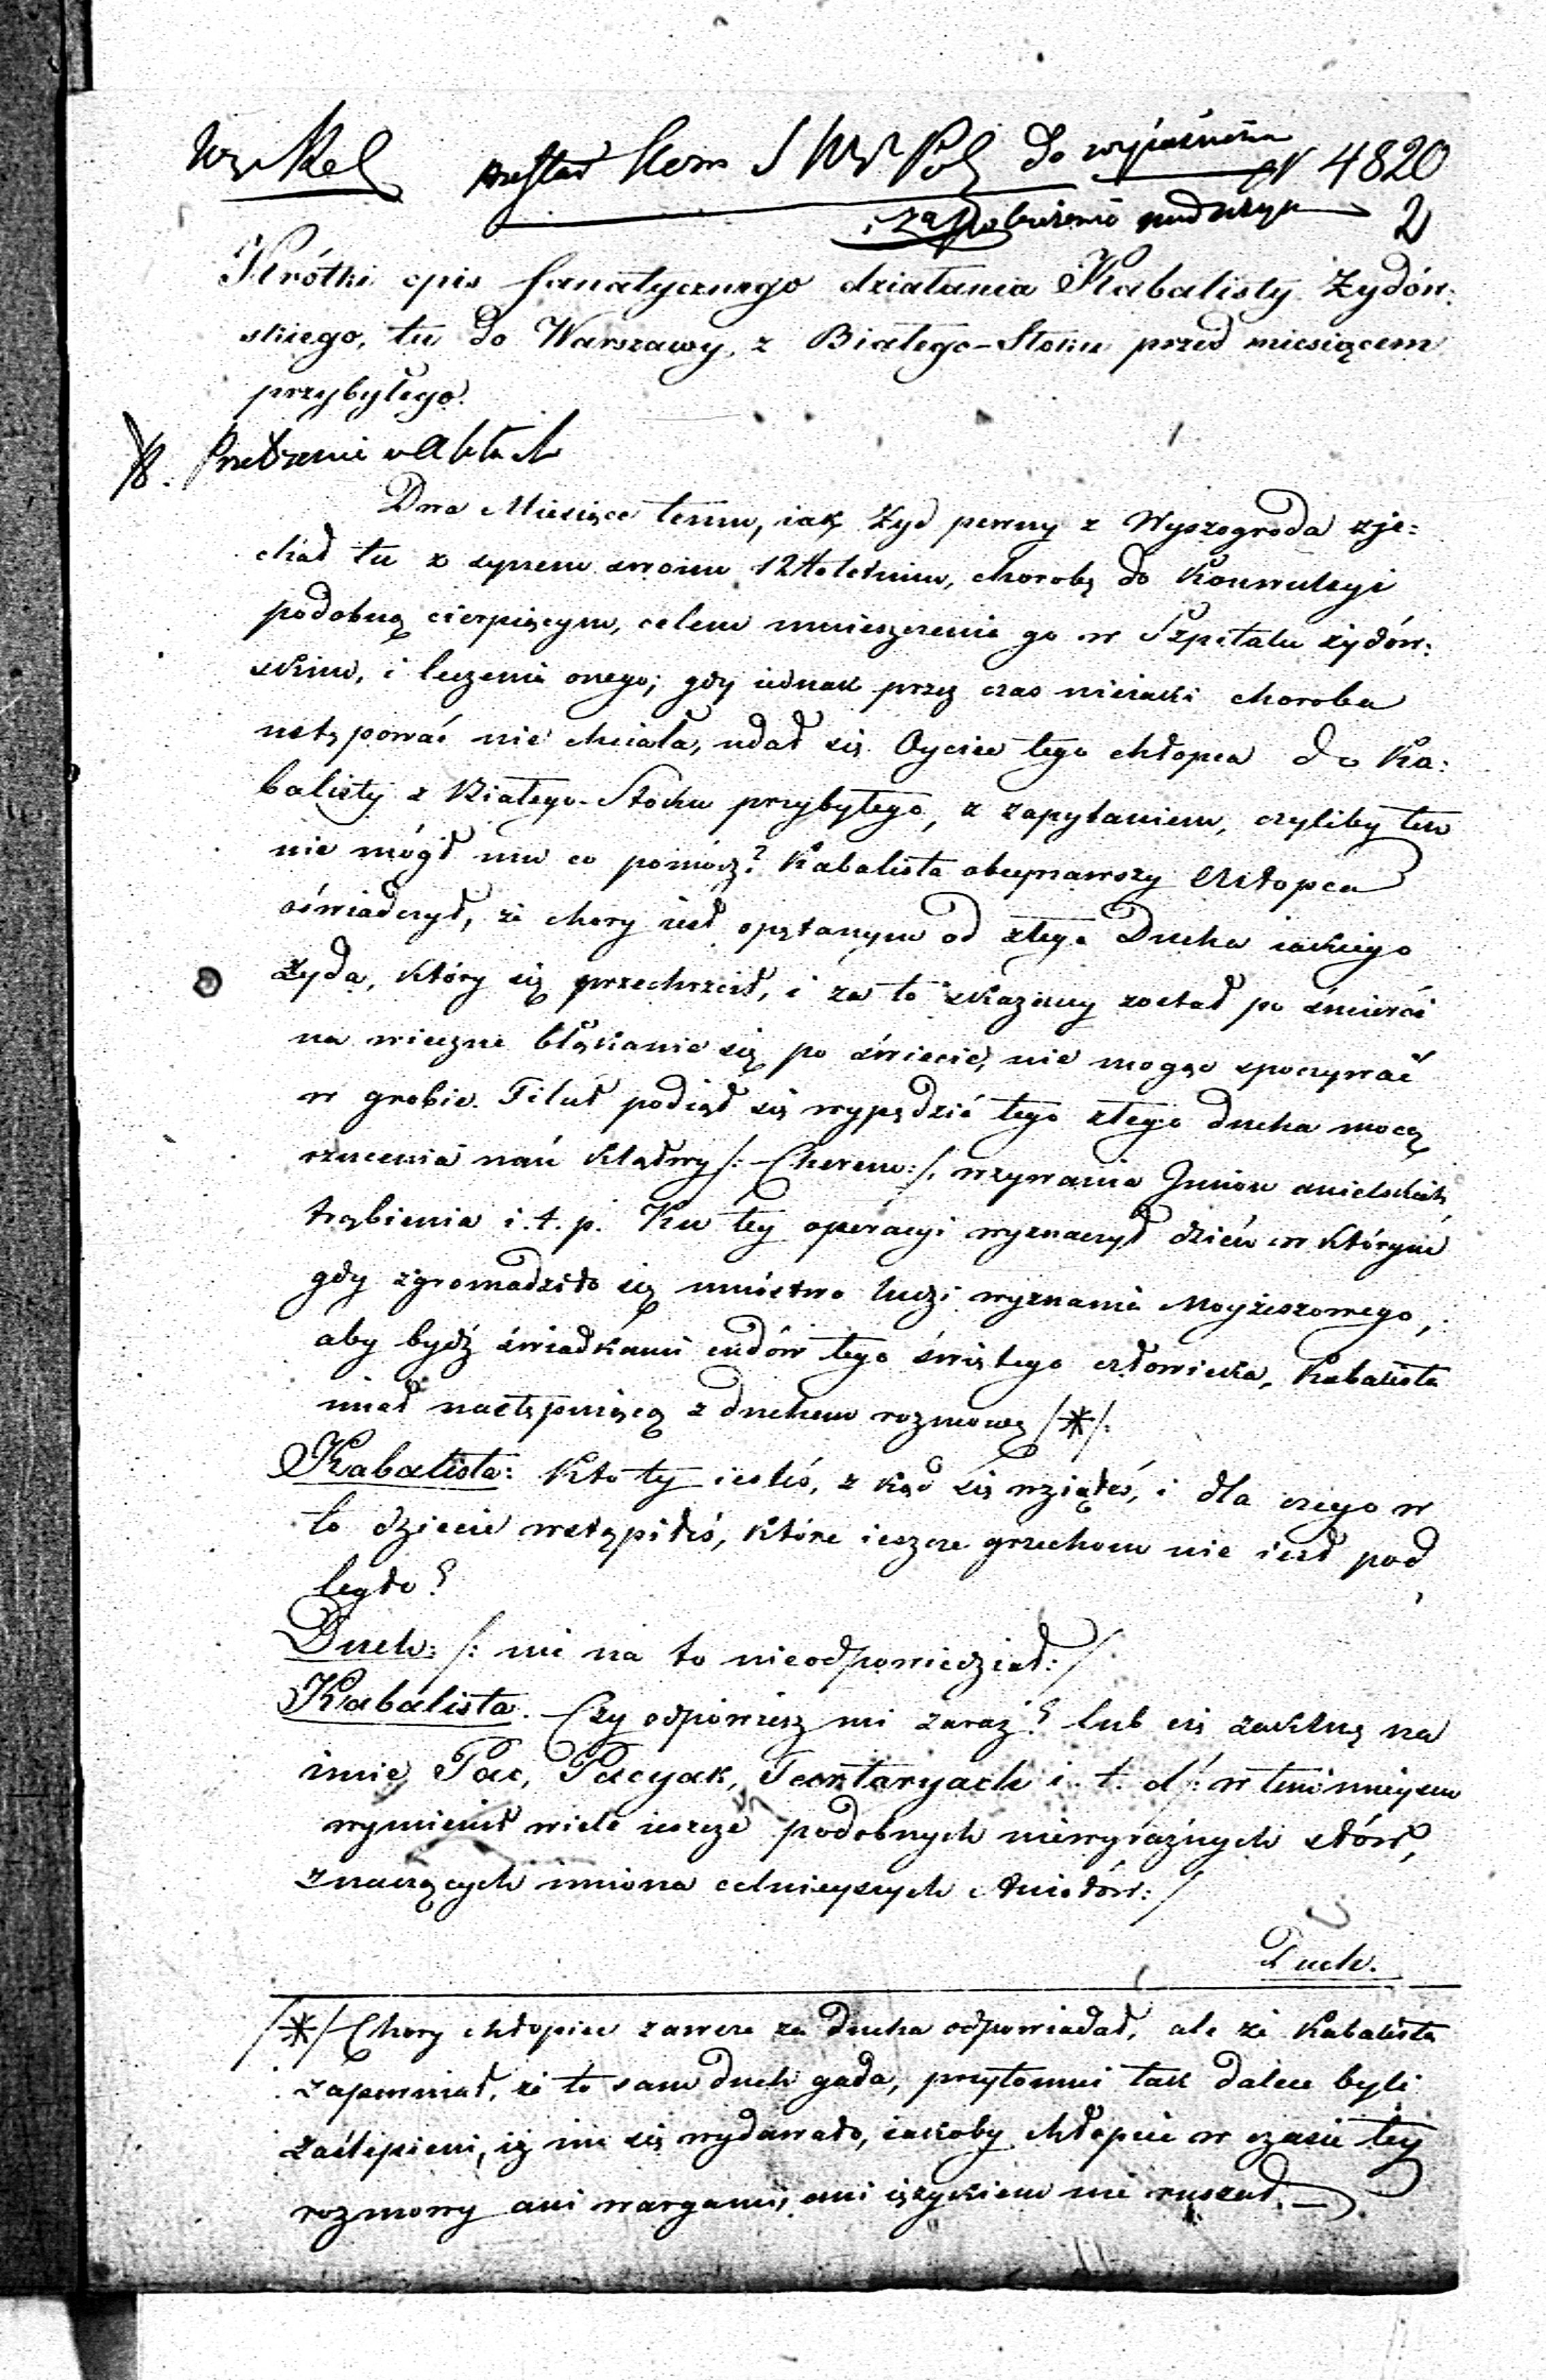 Kom S W i Pol do wyjaśnienia N 4820
i zapobieżenia nadużyciu 2
Krótki opis fanatycznego działania Kabalisty Żydow:
skiego, tu do Warszawy, z Białego-Stoku przed miesiącem
przybyłego.
w Aktach
Dwa Miesiące temu, iak Żyd pewny z Wyszogroda zje:
chał tu z synem swoim 12to letnim, chorobę do Konwulsyi
podobną cierpiącym, celem umieszczenia go w Szpitalu żydów:
skim, i leczenia onego; gdy iednak przez czas nieiaki choroba
ustąpować nie chciała, udał się Oyciec tego chłopca do Ka:
balisty z Białego-Stoku przybyłego, z zapytaniem, czyliby ten
nie mógł mu co pomódz? Kabalista obeyrzawszy Chłopca
oświadczył, że chory iest opętanym od złego Ducha iakiego
Żyda, który się przechrzcił, i za to skazany został po śmierci
na wieczne błąkanie się po świecie, nie mogąc spoczywać
w grobie. Filut podiął się wypędzić tego złego ducha mocą
rzucenia nań klątwy /: Cherem :/, wzywania Imion anielskich,
trąbienia i.t.p. Ku tey operacyi wyznaczył dzień w którym
gdy zgromadziło się mnóstwo ludzi wyznania Moyżeszowego,
aby bydź świadkami cudów tego świętego człowieka, Kabalista
miał następuiącą z duchem rozmowę /*/:
Kabalista: Kto ty iesteś, z kąd się wziąłeś, i dla czego w
to dziecie wstąpiłeś, które ieszcze grzechom nie iest pod
legło?
Duch: /: nic na to nieodpowiedział :/
Kabalista. Czy odpowiesz mi zaraz? lub cię zaklnę na
imie Pac, Pacyak, Tartaryach i. t. d /: w tem mieyscu
wymienił wiele ieszcze podobnych niewyraźnych słów,
znaczących imiona celnieyszych Aniołów :/
Duch.
/*/ Chory chłopiec zawsze za ducha odpowiadał, ale że Kabalista
zapewniał, że to sam duch gada, przytomni tak dalece byli
zaślepieni, iż im się wydawało, iakoby chłopiec w czasie tey
rozmowy ani wargami, ani ięzykiem nie ruszał.